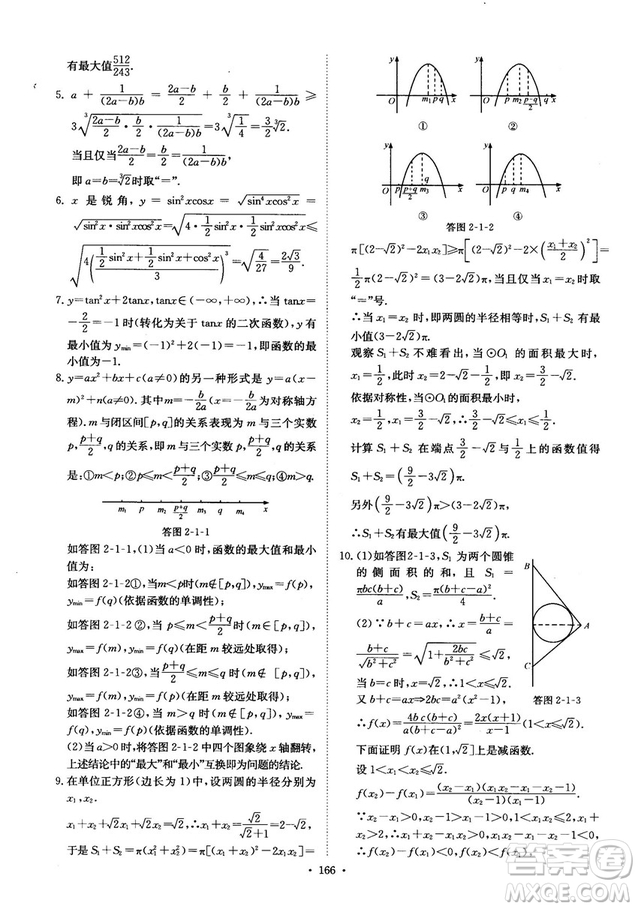 有最大值512/243.
5. a + 1/((2a−b)b) = (2a−b)/2 + b/2 + 1/((2a−b)b) ≥
3∛((2a−b)/2 · b/2 · 1/((2a−b)b)) = 3∛(1/4) = (3/2)∛2.
当且仅当(2a−b)/2 = b/2 = 1/((2a−b)b),
即a=b=∛2时取“=”.
6. x 是锐角, y = sin²xcosx = √(sin⁴xcos²x) =
√(sin²x·sin²xcos²x) = √(4·(sin²x/2)·(sin²x/2)·cos²x) ≤
√(4((½sin²x+½sin²x+cos²x)/3)³) = √(4/27) = 2√3/9.
7. y=tan²x+2tanx, tanx∈(−∞,+∞), ∴当tanx=
−2/2=−1时(转化为关于tanx的二次函数), y有
最小值为ymin=(−1)²+2(−1)=−1, 即函数的最
小值为−1.
8. y=ax²+bx+c(a≠0)的另一种形式是y=a(x−
m)²+n(a≠0). 其中m=−b/2a(x=−b/2a为对称轴方
程). m与闭区间[p,q]的关系表现为m与三个实数
p, (p+q)/2, q的关系, 即m与三个实数p, (p+q)/2, q的关系
是:①m<p;②p≤m<(p+q)/2;③(p+q)/2≤m≤q;④m>q.
m₁ p m₂ (p+q)/2 m₃ q m₄ x
答图2-1-1
如答图2-1-1,(1)当a<0时,函数的最大值和最小
值为:
如答图2-1-2①,当m<p时(m∉[p,q]), ymax=f(p),
ymin=f(q)(依据函数的单调性);
如答图2-1-2②,当p≤m<(p+q)/2时(m∈[p,q]),
ymax=f(m), ymin=f(q)(在距m较远处取得);
如答图2-1-2③,当(p+q)/2≤m≤q时(m∈[p,q]),
ymax=f(m), ymin=f(p)(在距m较远处取得);
如答图2-1-2④,当m>q时(m∉[p,q]), ymax=f(q),
ymin=f(p)(依据函数的单调性).
(2)当a>0时,将答图2-1-2中四个图象绕x轴翻转,
上述结论中的“最大”和“最小”互换即为问题的结论.
9. 在单位正方形(边长为1)中,设两圆的半径分别为
x₁,x₂.
x₁+x₂+√2x₁+√2x₂=√2⇒x₁+x₂=√2/(√2+1)=2−√2,
于是S₁+S₂=π(x₁²+x₂²)=π[(x₁+x₂)²−2x₁x₂]=
y O m₁ p q x
①
y O p m₂ (p+q)/2 q x
②
y O p (p+q)/2 m₃ q x
③
④
答图2-1-2
π[(2−√2)²−2x₁x₂]≥π[(2−√2)²−2×((x₁+x₂)/2)²]=
½π(2−√2)²=(3−2√2)π. 当且仅当x₁=x₂时取
“=”号.
∴当x₁=x₂时,即两圆的半径相等时,S₁+S₂有最
小值(3−2√2)π.
观察S₁+S₂不难看出,当⊙O₁的面积最大时,
x₁=½, 此时x₂=2−√2−x₁=3/2−√2.
依据对称性,当⊙O₂的面积最大时,
x₂=½, x₁=3/2−√2, ∴3/2−√2≤x₁≤½.
计算S₁+S₂在端点3/2−√2, ½处的函数值得
S₁+S₂=(9/2−3√2)π.
另外(9/2−3√2)π>(3−2√2)π,
∴S₁+S₂有最大值(9/2−3√2)π.
10. (1)如答图2-1-3, S₁为两个圆锥
的侧面积的和,且S₁=
πbc(b+c)/a, S₂=πbc(b+c−a)/4.
(2)∵b+c>a, x=(b+c)/a=
(b+c)/√(b²+c²)=√(1+2bc/(b²+c²))≤√2,
∴1<x≤√2.
B A C
答图2-1-3
又b+c=ax⇒2bc=a²(x²−1),
∴f(x)=4bc(b+c)/(a²(b+c−a))=2x(x+1)(1<x≤√2).
下面证明f(x)在(1,√2]上是减函数.
设1<x₁<x₂≤√2,
∴f(x₂)−f(x₁)=
∵x₂−x₁>0, x₁−1>0, 1<x₁<x₂≤√2,
∴f(x₂)−f(x₁)<0, ∴f(x₂)<f(x₁),
· 166 ·
答案圈